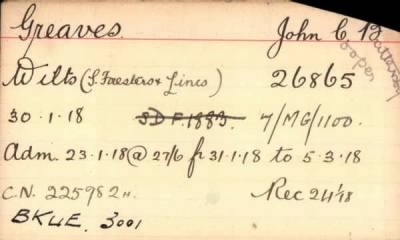 Greaves John C B
Cooper Battersby
Wilts (S. Foresters & Lincs) 26865
30.1.18 S D F.1883. 7/MG/1100.
Adm. 23.1.18 @ 27/6 fr 31.1.18 to 5.3.18
C.N. 225982". Rec 24/1/18
BKUE. 3001